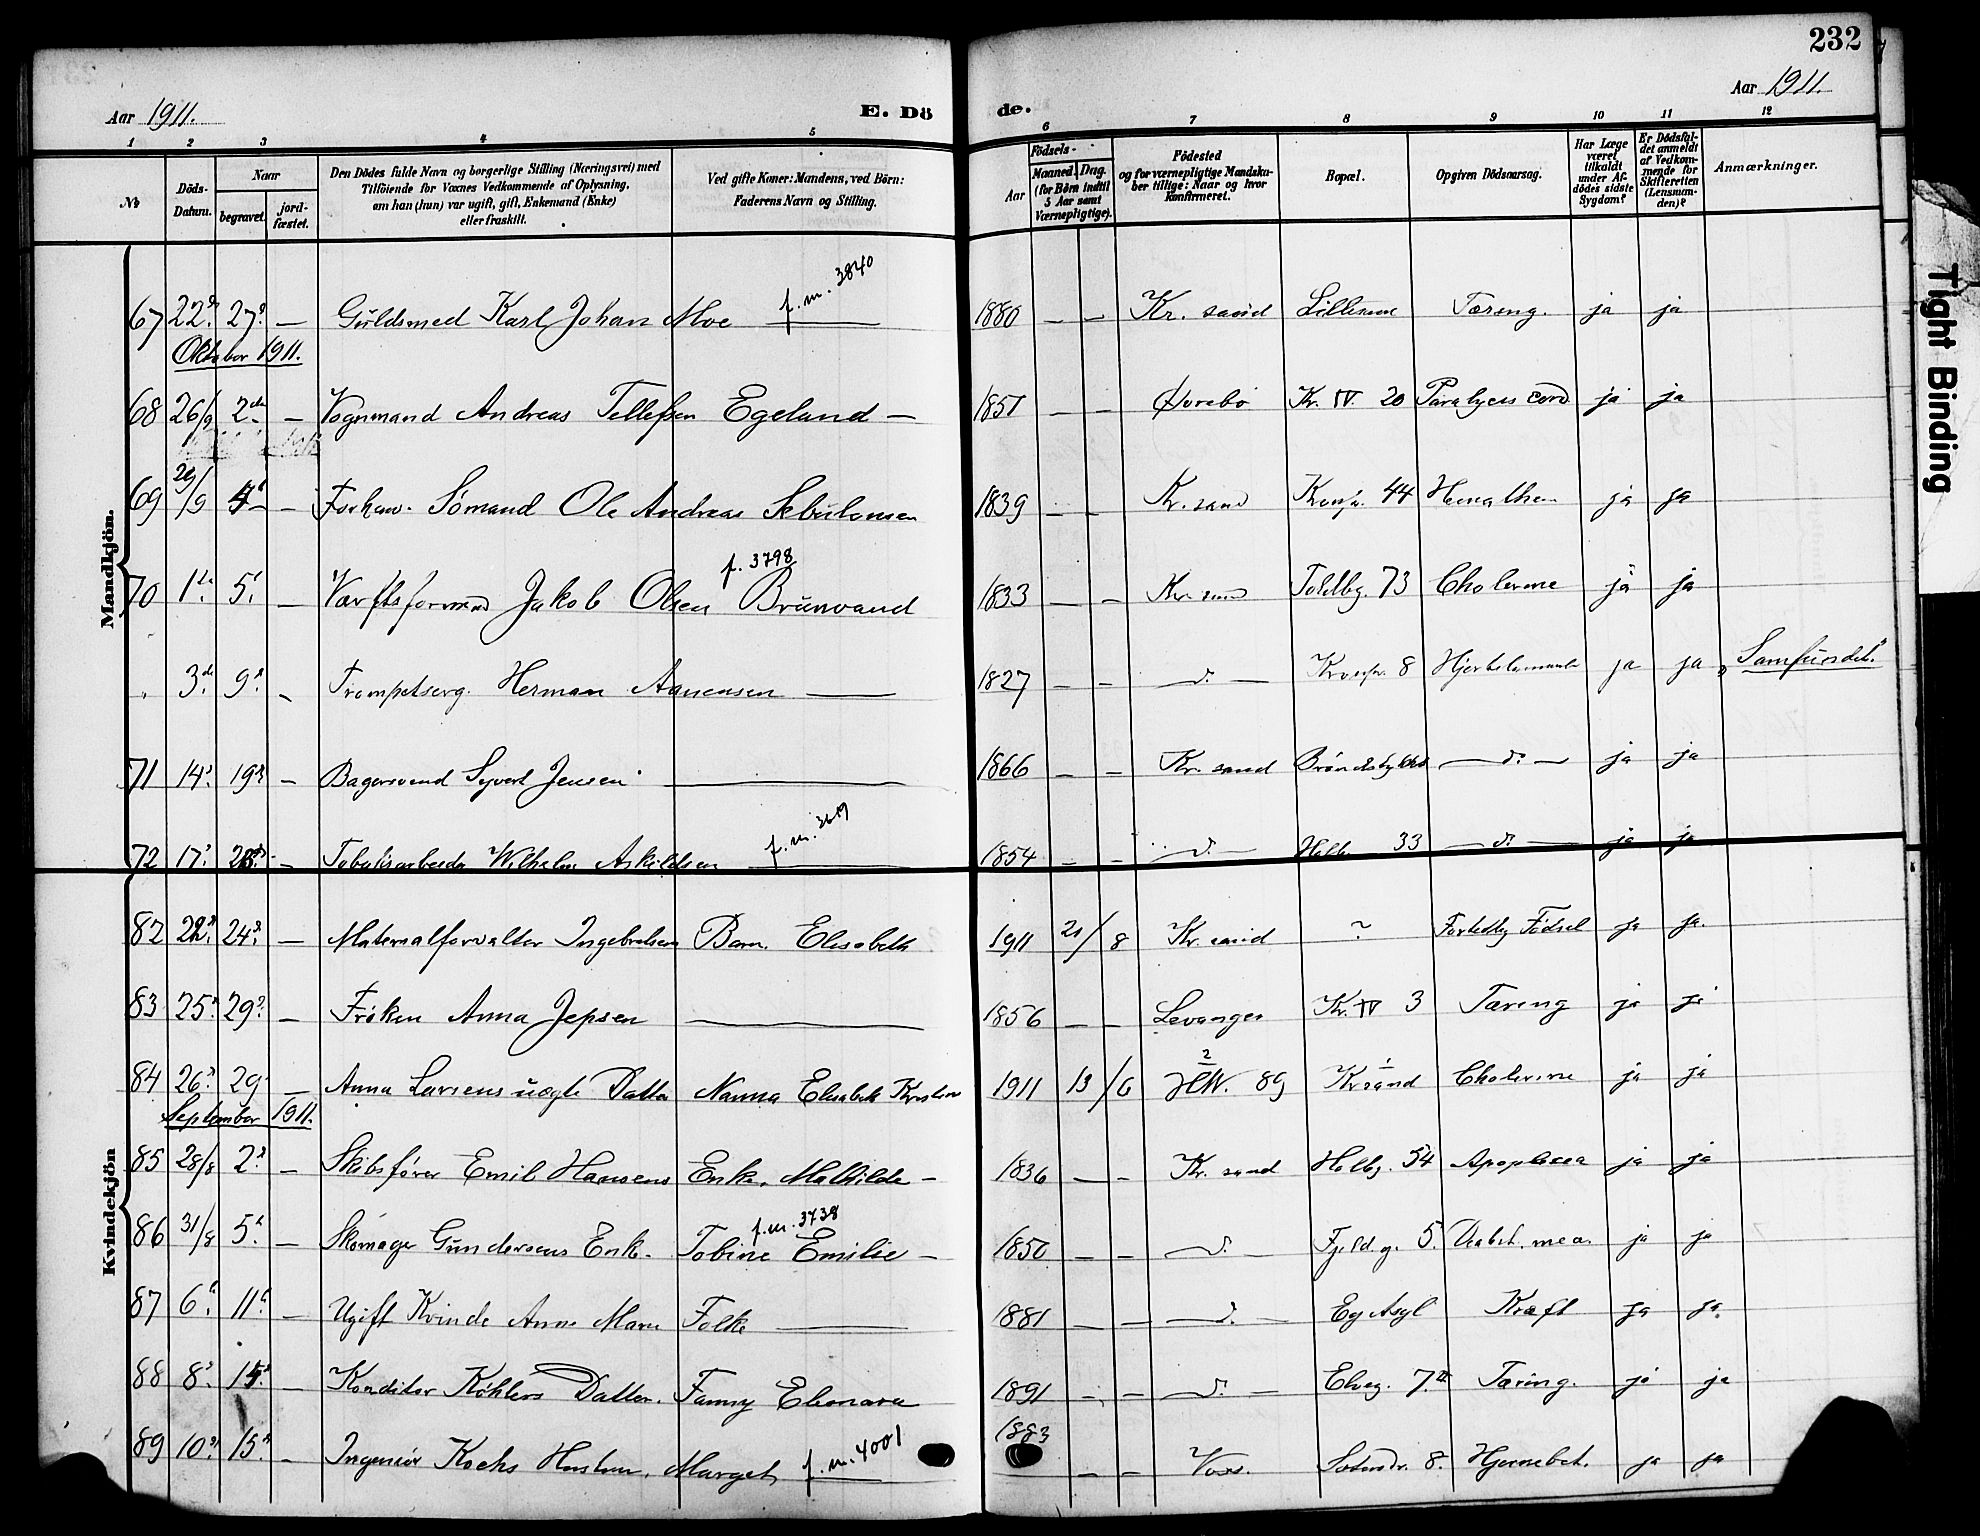 232
Aar 1911.
E. Dö
de.
Aar 1911.
1 2 3 4 5 6 7 8 9 10 11 12
№
Döds-Datum.
Naar
begravet.
jord-fæstet.
Den Dödes fulde Navn og borgerlige Stilling (Næringsvei) med
Tilföiende for Voxnes Vedkommende af Oplysning,
om han (hun) var ugift, gift, Enkemand (Enke)
eller fraskilt.
Ved gifte Koner: Mandens, ved Börn:
Faderens Navn og Stilling.
Födsels-
Aar
Maaned. Dag.
(for Börn indtil
5 Aar samt
Værnepligtige).
Födested
og for værnepligtige Mandsku-
ber tillige: Naar og hvor
konfirmeret.
Bopæl.
Opgiven Dödsaarsag.
Har Læge
været
tilkaldt
under Af-
dödes sidste
Sygdom?
Er Dödsfal-
det anmeldt
af Vedkom-
mende for
Skifteretten
(Lensman-
den)?
Anmærkninger.
Mandkjön.
67 22. 27. — Guldsmed Karl Johan Moe — f. m. 3840 1880 — — Kr. sand Tæring. ja ja
Oktober 1911.
68 26/9 2de — Vognmand Andreas Tellefsen Egeland — 1851 — — Øvrebø Kr. IV. 20 ja ja
69 29/9 4 — Forhenv. Sömand Ole Andreas Sebulonsen 1839 — — Kr. sand 44 ja ja
70 1. 5. — Værftsformand Jakob Olsen Brunvand f. 3798 1833 — — Kr. sand Toldbg. 73 Cholerine ja ja
" 3de 9. — Trompetserg. Herman Aanensen — 1827 — — — d. — Kronpr. 8 ja ja "Samfundet"
71 14. 19. — Bagersvend Syvert Jensen — 1866 — — Kr. sand — d. — ja ja
72 17. 23. — Tobaksarbeider Wilhelm Askildsen — f. m. 3619 1854 — — — d. — Holb. 33 — d. — ja ja
Kvindekjön
82 22. 24. — Materialforvalter Ingebretsens Barn. Elisabeth 1911 21/8 Kr. sand ? Fortidlig Födsel ja ja
83 25. 29. — Fröken Anna Jepsen — 1856 — — Levanger Kr. IV 3 Tæring ja ja
84 26. 29 — Anna Larsens uægte Datter Nanna Elisabeth 1911 13/6 H.W. 89 2 Kr sand 1 Cholerine ja ja
September 1911.
85 28/8 2. — Skibsförer Emil Hansens Enke, Mathilde — 1836 — — Kr. sand Holbg. 54 Apoplexia ja ja
86 31/8 5. — Skomager Gundersens Enke. Tobine Emilie — f. m. 3738 1850 — — — d. — Fjeldg. 5. ja ja
87 6. 11. — Ugift Kvinde Anne Marie Folke — 1881 — — — d. — Eg Asyl Kræft ja ja
88 8. 15. — Konditor Köhlers Datter. Fanny Elenora 1891 — — — d. — Elveg. 7. Tæring. ja ja
89 10. 15. — Ingeniör Kochs Hustru. Marget — f. m. 4001 1883 — — Voss. 8. ja ja
Tight Binding